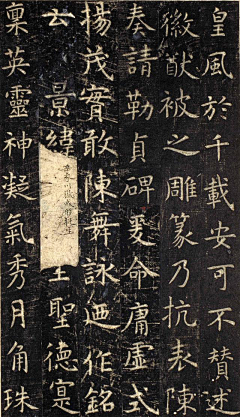 皇風於千載安可不贊述
徽猷被之雕篆乃抗表陳
奏請勒貞碑爰命庸虛式
揚茂實敢陳舞詠迺作銘
云景緯聖德寔
稟英靈神凝氣秀月角珠